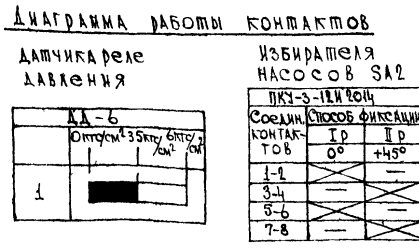 ДИАГРАММА РАБОТЫ КОНТАКТОВ
ДАТЧИКА РЕЛЕ
ДАВЛЕНИЯ
ДД-6
0 КГС/СМ² 3.5 КГС/СМ² 6 КГС/СМ²
1
ИЗБИРАТЕЛЯ
НАСОСОВ SA2
ПКУ-3-12И2014
СОЕДИН. КОНТАК-ТОВ
СПОСОБ ФИКСАЦИИ
I р II р
0° +45°
1-2 —
3-4 —
5-6 —
7-8 —